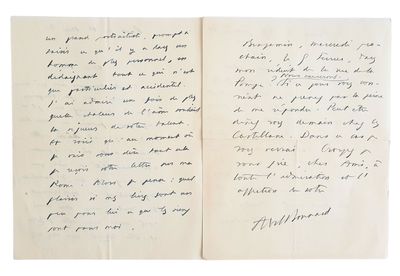 un grand portraitiste, prompt à
saisir ce qu'il y a dans un
homme de plus personnel, en
dédaignant tout ce qui n'est
que particulier et accidentel.
J'ai admiré une fois de plus
quelle chaleur de l'âme
la rigueur de votre talent
Et voici qu'au moment où
je vais vous dire tout cela
je reçois votre lettre sur ma
Rome. Alors, je pense : quel
plaisir si mes livres sont un
peu pour lui ce que les siens
sont pour moi.
Benjamin, mercredi pro-
chain, le 8 Février, chez
mon de la rue de la
Pompe. Nous
ne prenez pas la peine
de me répondre. Peut-être
dînez-vous demain chez les
Castellane. Dans ce cas je
vous verrai. Croyez, je
vous prie, cher Ami, à
toute l'admiration et l'
affection de votre
Abel Bonnard